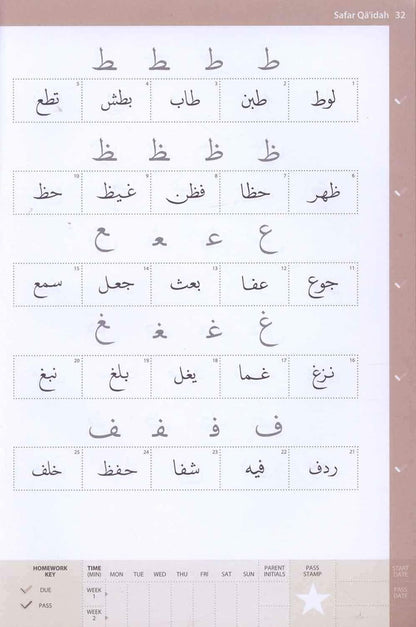 Safar Qā'idah 32
ط ط ط ط
1 لوط 2 طبن 3 طاب 4 بطش 5 تطع
ظ ظ ظ ظ
6 ظهر 7 حظا 8 فظن 9 غيظ 10 حظ
ع ع ع ع
11 جوع 12 عفا 13 بعث 14 جعل 15 سمع
غ غ غ غ
16 نزغ 17 غما 18 يغل 19 بلغ 20 نبغ
ف ف ف ف
21 ردف 22 فيه 23 شفا 24 حفظ 25 خلف
HOMEWORK KEY
DUE
PASS
TIME (MIN) MON TUE WED THU FRI SAT SUN PARENT INITIALS PASS STAMP START DATE
WEEK 1 PASS DATE
WEEK 2